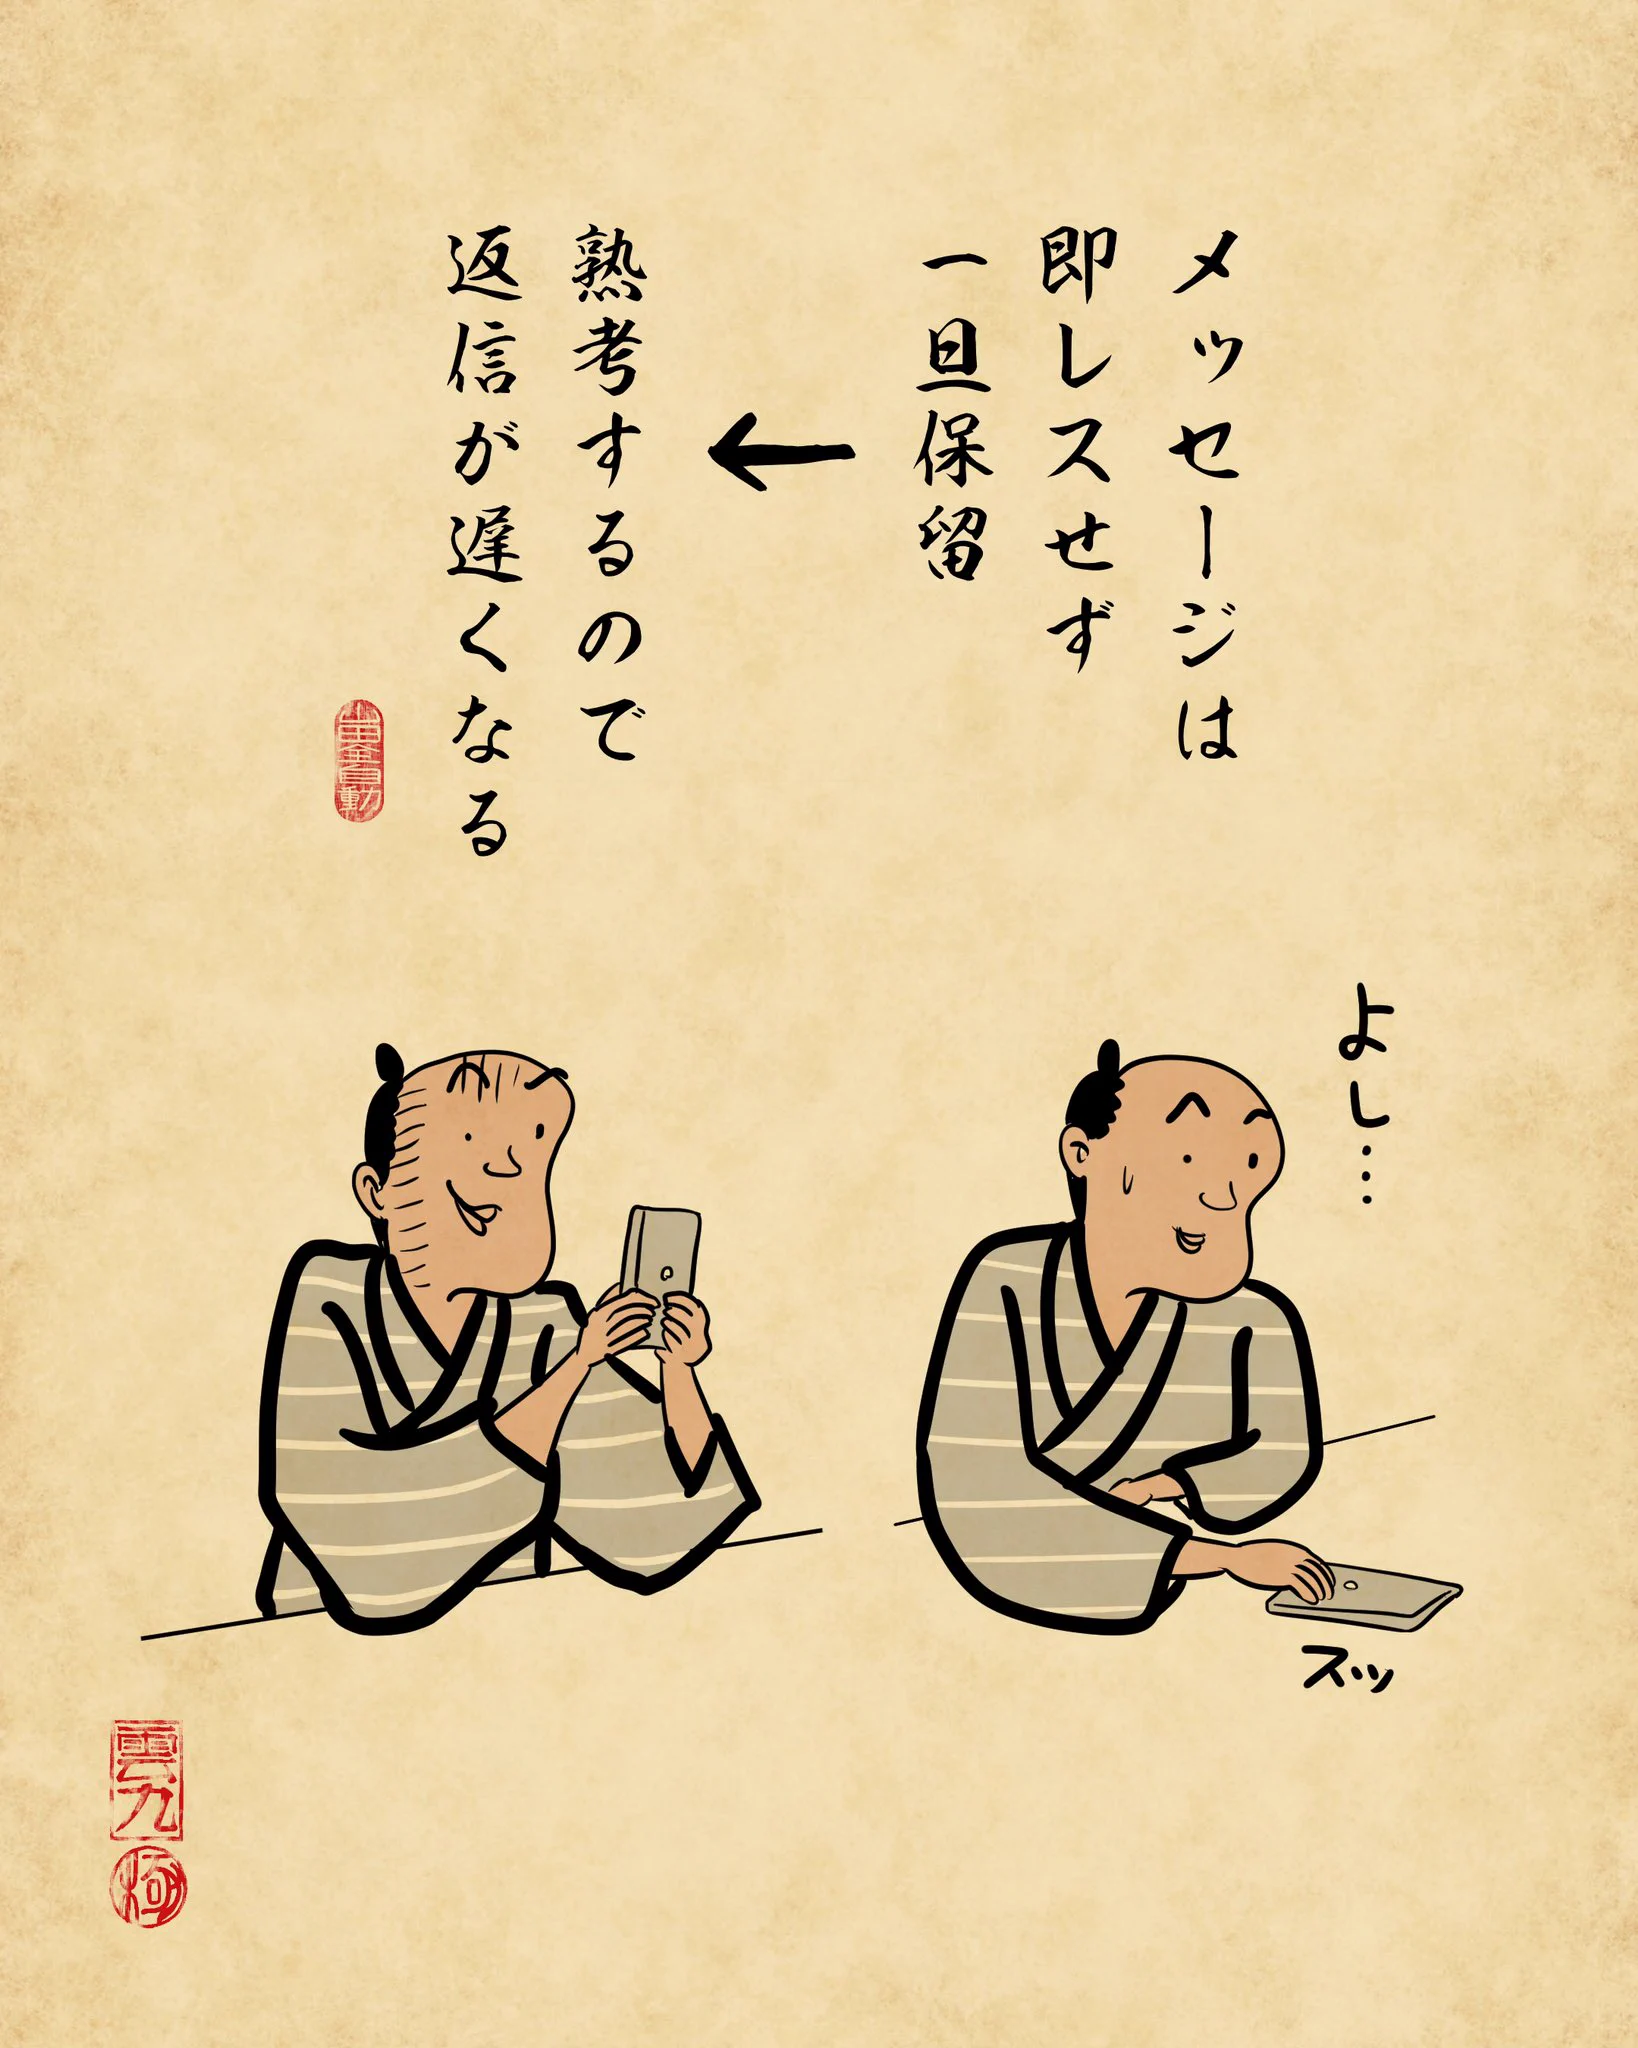 メッセージは
即レスせず
一旦保留
←
熟考するので
返信が遅くなる
山田全自動
よし…
スッ
雲丸
極